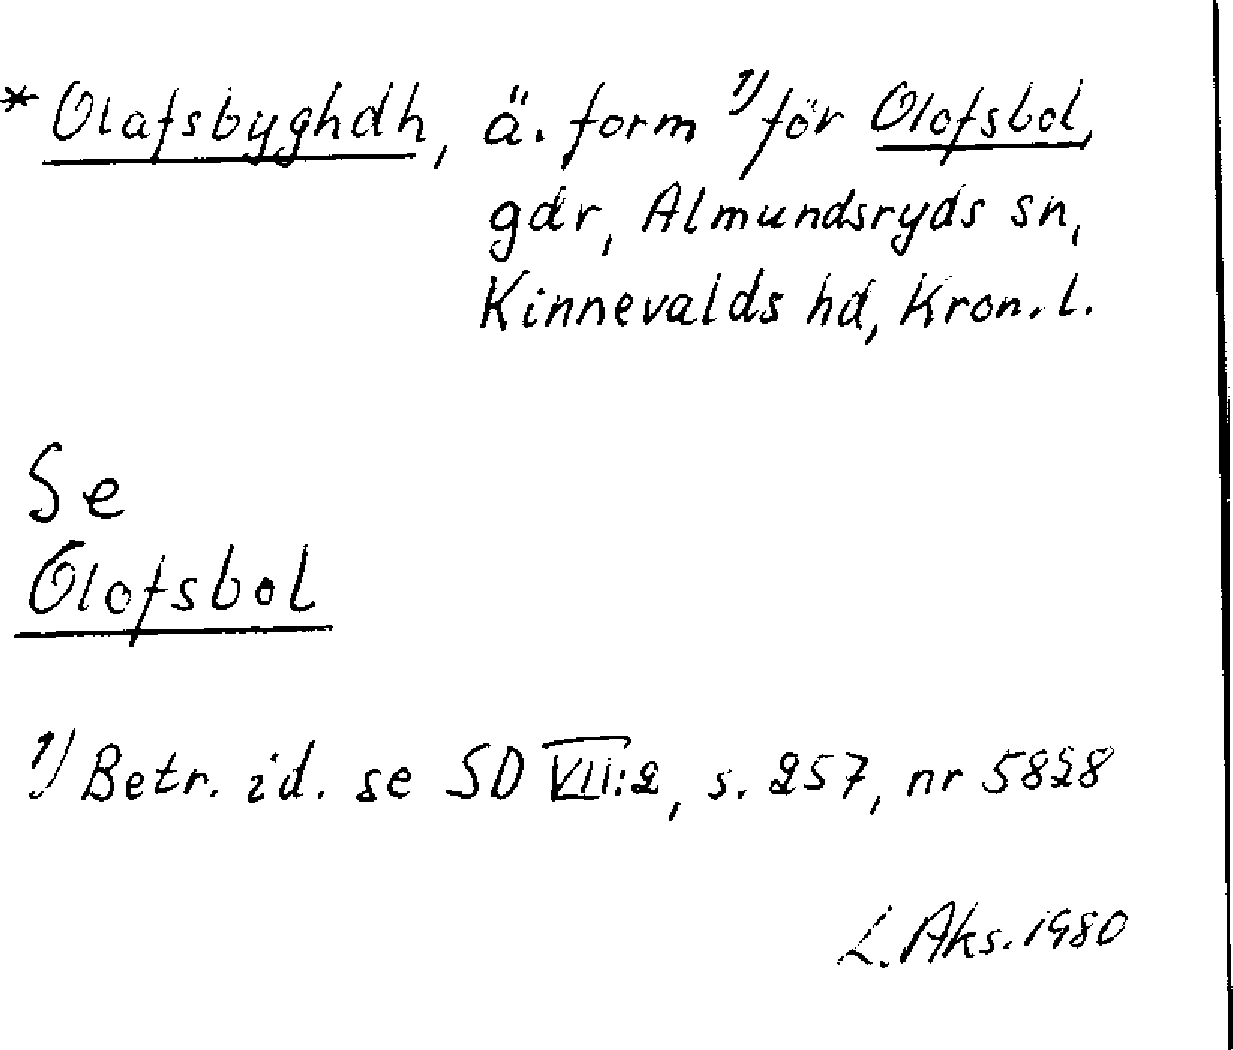 * Olafsbyghdh, ä. form 1) för Olofsbol,
gdr, Almundsryds sn,
Kinnevalds hd, Kron. l.
Se
Olofsbol
1) Betr. id. se SD VII:2, s. 257, nr 5828
L. Aks. 1980